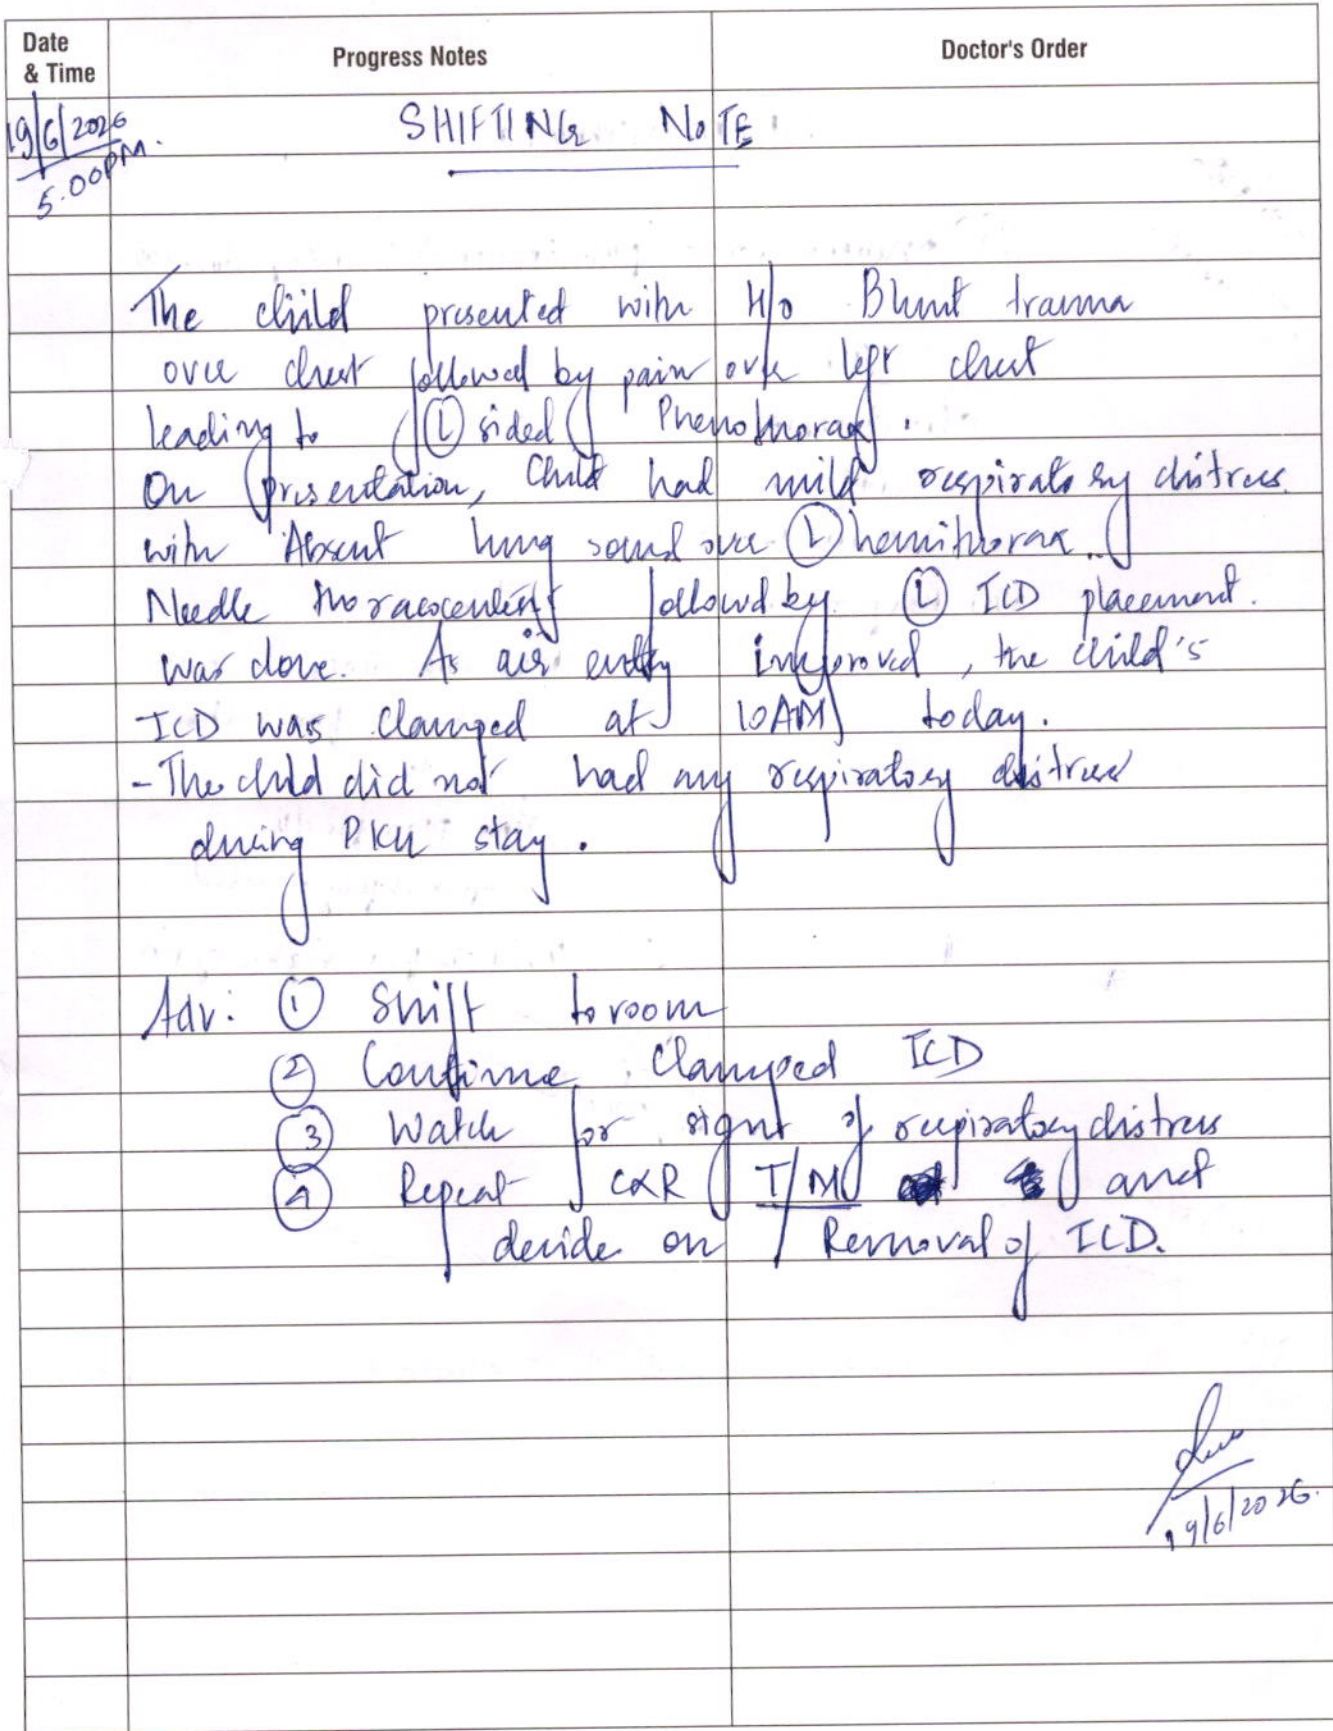 Date & Time
Progress Notes
Doctor's Order
19/6/2026
5.00PM.
SHIFTING NOTE
The child presented with H/o Blunt trauma
over chest followed by pain over left chest
leading to (L) sided Phenothorax.
On presentation, Child had mild respiratory distress
with Absent lung sound over (L) hemithorax.
Needle thoracocentesis followed by (L) ICD placement.
was done. As air entry improved, the child's
ICD was Clamped at 10AM today.
- The child did not had any respiratory distress
during PICU stay.
Adv: (1) Shift to room
(2) Continue Clamped ICD
(3) Watch for signs of respiratory distress
(4) Repeat CXR T/M and
decide on Removal of ICD.
19/6/2026.